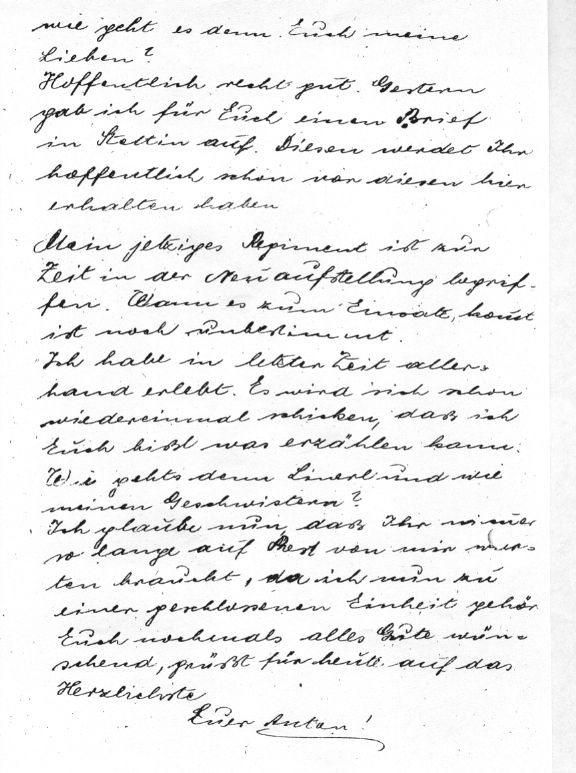 wie geht es denn Euch meine
Lieben?
Hoffentlich recht gut. Gestern
gab ich für Euch einen Brief
in Stettin auf. Diesen werdet Ihr
hoffentlich schon vor diesen hier
erhalten haben
Mein jetziges Regiment ist zur
Zeit in der Neuaufstellung begrif-
fen. Wann es zum Einsatz komt
ist noch unbestimmt.
Ich habe in letzter Zeit aller-
hand erlebt. Es wird sich schon
wiedereinmal schicken, daß ich
Euch bißl was erzählen kann.
Wie gehts denn Linerl und wie
meinen Geschwistern?
Ich glaube nun, daß Ihr nimmer
so lange auf Post von mir war-
ten braucht, da ich nun zu
einer geschlossenen Einheit gehör
Euch nochmals alles Gute wün-
schend, grüßt für heute auf das
Herzlichste
Euer Anton!